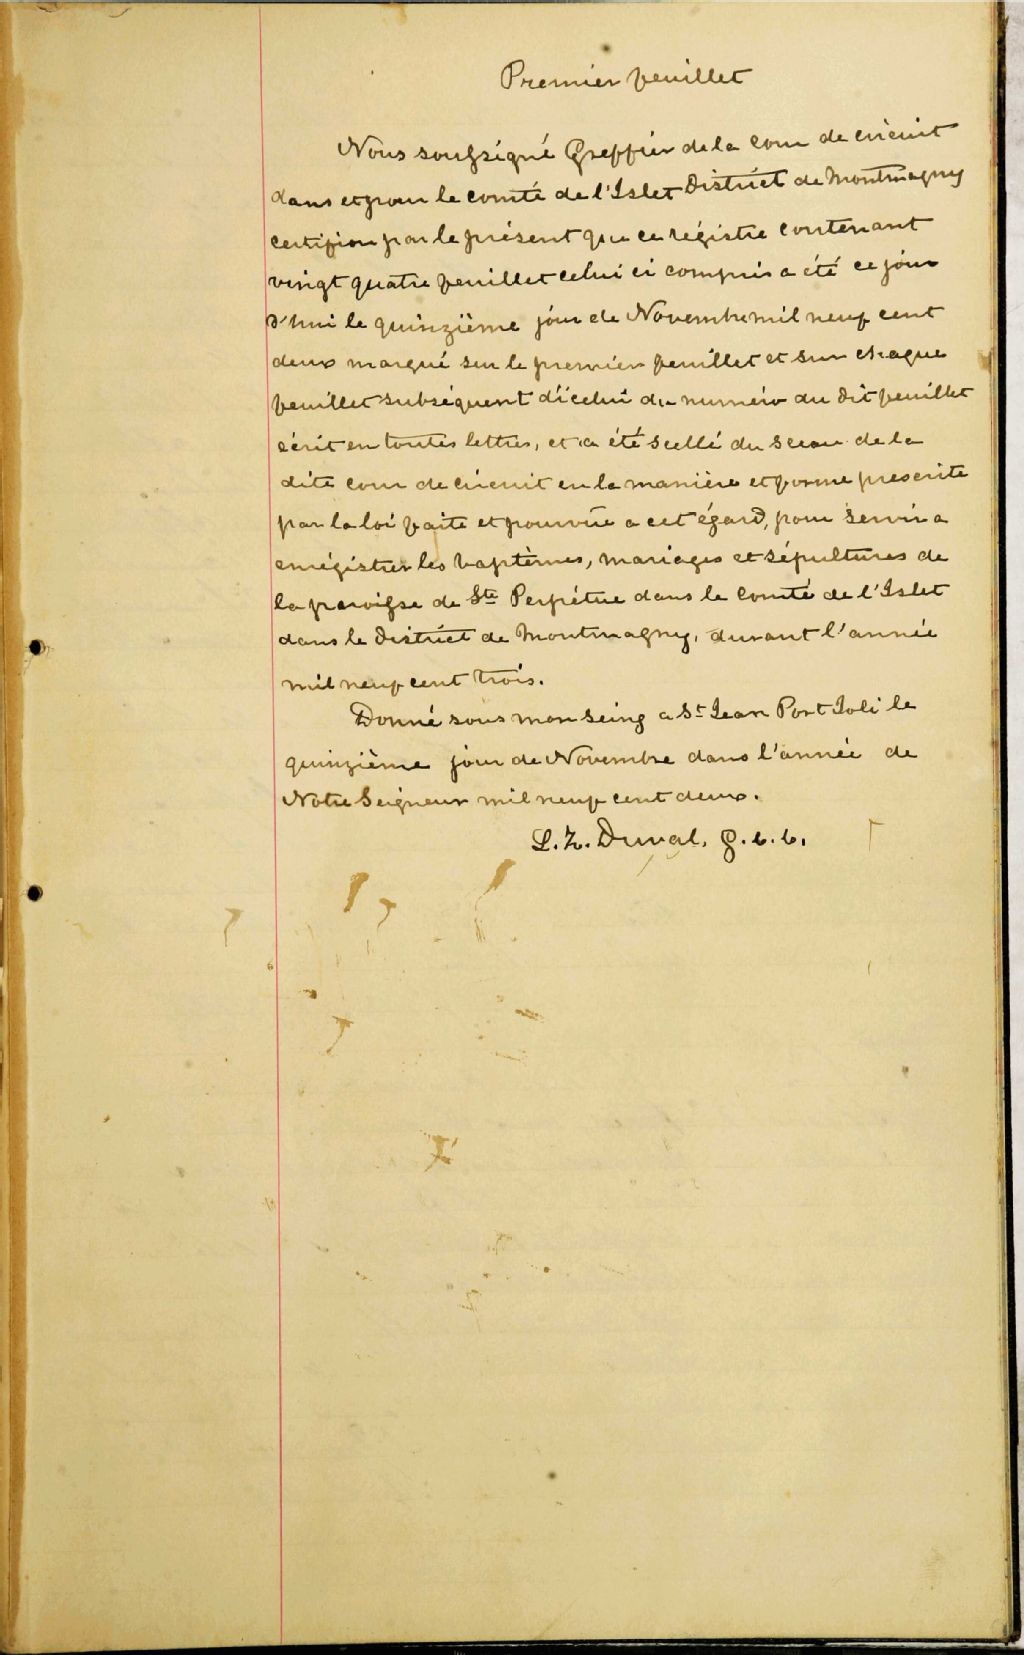 Premier feuillet
Nous soussigné Greffier de la cour de circuit
dans et pour le comté de l'Islet District de Montmagny
certifion par le présent que ce régistre contenant
vingt quatre feuillet celui ci compris a été ce jour
d'hui le quinzième jour de Novembre mil neuf cent
deux marqué sur le premier feuillet et sur chaque
feuillet subséquent d'icelui du numéro du dit feuillet
écrit en toutes lettres, et a été scellé du sceau de la
dite cour de circuit en la manière et forme prescrite
par la loi faite et pourvue a cet égard, pour servir a
enrégistrer les baptèmes, mariages et sépultures de
la paroisse de Ste Perpétue dans le Comté de l'Islet
dans le District de Montmagny, durant l'année
mil neuf cent trois.
Donné sous mon seing a St Jean Port Joli le
quinzième jour de Novembre dans l'année de
Notre Seigneur mil neuf cent deux.
L. Z. Duval. G. c. c.